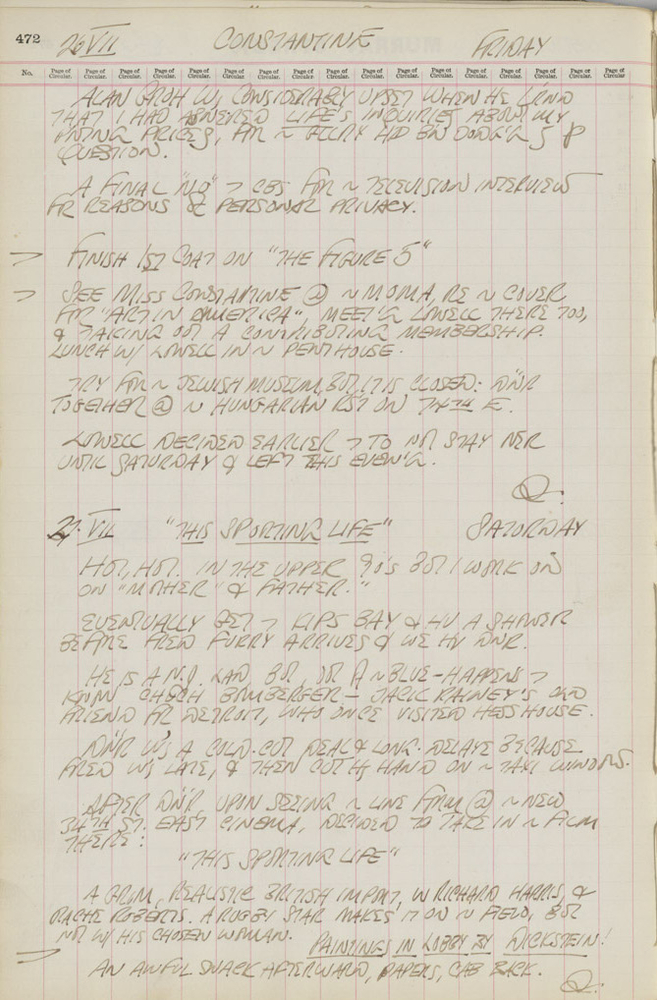 472 26 VII CONSTANTINE FRIDAY
No. Page of Circular. Page of Circular. Page of Circular. Page of Circular. Page of Circular. Page of Circular. Page of Circular. Page of Circular. Page of Circular. Page of Circular. Page of Circular. Page of Circular. Page of Circular. Page of Circular. Page of Circular. Page of Circular. Page of Circular.
ALAN CONSIDERABLY UPSET WHEN HE
THAT I HAD LIFE'S INQUIRIES ABOUT MY
PRICES, HD BN 5 P
QUESTION.
A FINAL "NO" > CBS FR ~ TELEVISION INTERVIEW
FR REASONS OF PERSONAL PRIVACY.
> FINISH 1ST COAT ON "THE FIGURE 5"
> SEE MISS CONSTANTINE @ ~ MOMA, RE ~ COVER
FR "ART IN AMERICA", MEET'G LOWELL THERE TOO,
& TAKING OUT A CONTRIBUTING MEMBERSHIP.
LUNCH W/ LOWELL IN ~ PENTHOUSE.
TRY FR ~ JEWISH MUSEUM, BUT IT IS CLOSED: DN'R
TOGETHER @ ~ HUNGARIAN RST ON 74TH E.
LOWELL DECIDED EARLIER > TO NOT STAY
UNTIL SATURDAY & LEFT THIS EVEN'G.
27 VII "THIS SPORTING LIFE" SATURDAY
HOT, HOT. IN THE UPPER 90'S BUT I WORK ON
ON "MOTHER" & FATHER."
EVENTUALLY GET > KIPS BAY & HV A SHOWER
BEFORE FRED FURRY ARRIVES & WE HV DNR.
HE IS A N.O. LAD, BUT, OUT OF ~ BLUE-HAPPENS >
KNOW CHUCH BAMBERGER - JACK RAINEY'S OLD
FRIEND FR DETROIT, WHO ONCE VISITED HESS HOUSE.
DN'R WS A COLD-CUT DEAL & LONG-DELAYE BECAUSE
FRED WS LATE, & THEN CUT HIS HAND ON ~ TAXI WINDOW.
AFTER DN'R, UPON SEEING ~ LINE FORM @ ~ NEW
34TH ST. EAST CINEMA, DECIDED TO TAKE IN ~ FILM
THERE:
"THIS SPORTING LIFE"
A GRIM, REALISTIC BRITISH IMPORT, W RICHARD HARRIS, &
RACHE ROBERTS. A RUGBY STAR MAKES IT ON ~ FIELD, BUT
NOT W/ HIS CHOSEN WOMAN. PAINTINGS IN LOBBY BY DICKSTEIN!
> AN AWFUL SNACK AFTERWARD, PAPERS, CAB BACK.